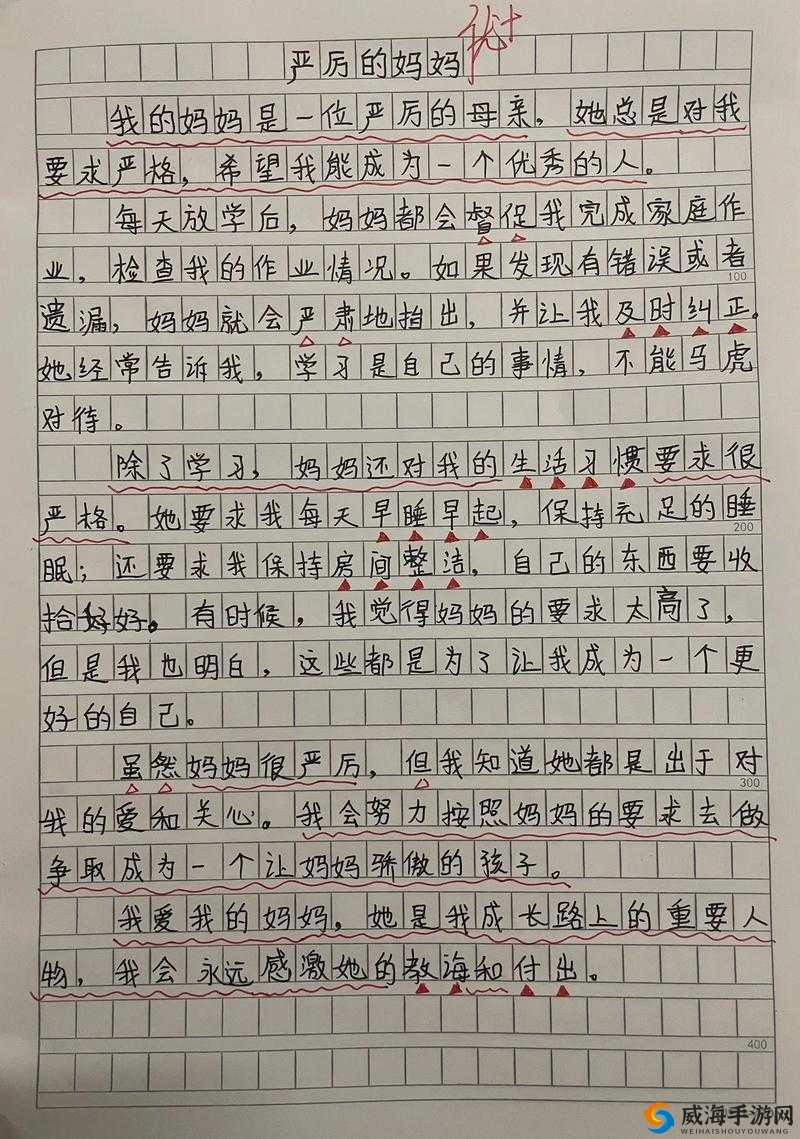 严厉的妈妈 优+
我的妈妈是一位严厉的母亲，她总是对我
要求严格，希望我能成为一个优秀的人。
每天放学后，妈妈都会督促我完成家庭作
业，检查我的作业情况。如果发现有错误或者
100
遗漏，妈妈就会严肃地指出，并让我及时纠正。
她经常告诉我，学习是自己的事情，不能马虎
对待。
除了学习，妈妈还对我的生活习惯要求很
严格。她要求我每天早睡早起，保持充足的睡
200
眠；还要求我保持房间整洁，自己的东西要收
拾好好。有时候，我觉得妈妈的要求太高了，
但是我也明白，这些都是为了让我成为一个更
好的自己。
虽然妈妈很严厉，但我知道她都是出于对
300
我的爱和关心。我会努力按照妈妈的要求去做
争取成为一个让妈妈骄傲的孩子。
我爱我的妈妈，她是我成长路上的重要人
物，我会永远感激她的教海和付出。
400
威海手游网
WEIHAISHOUYOUWANG